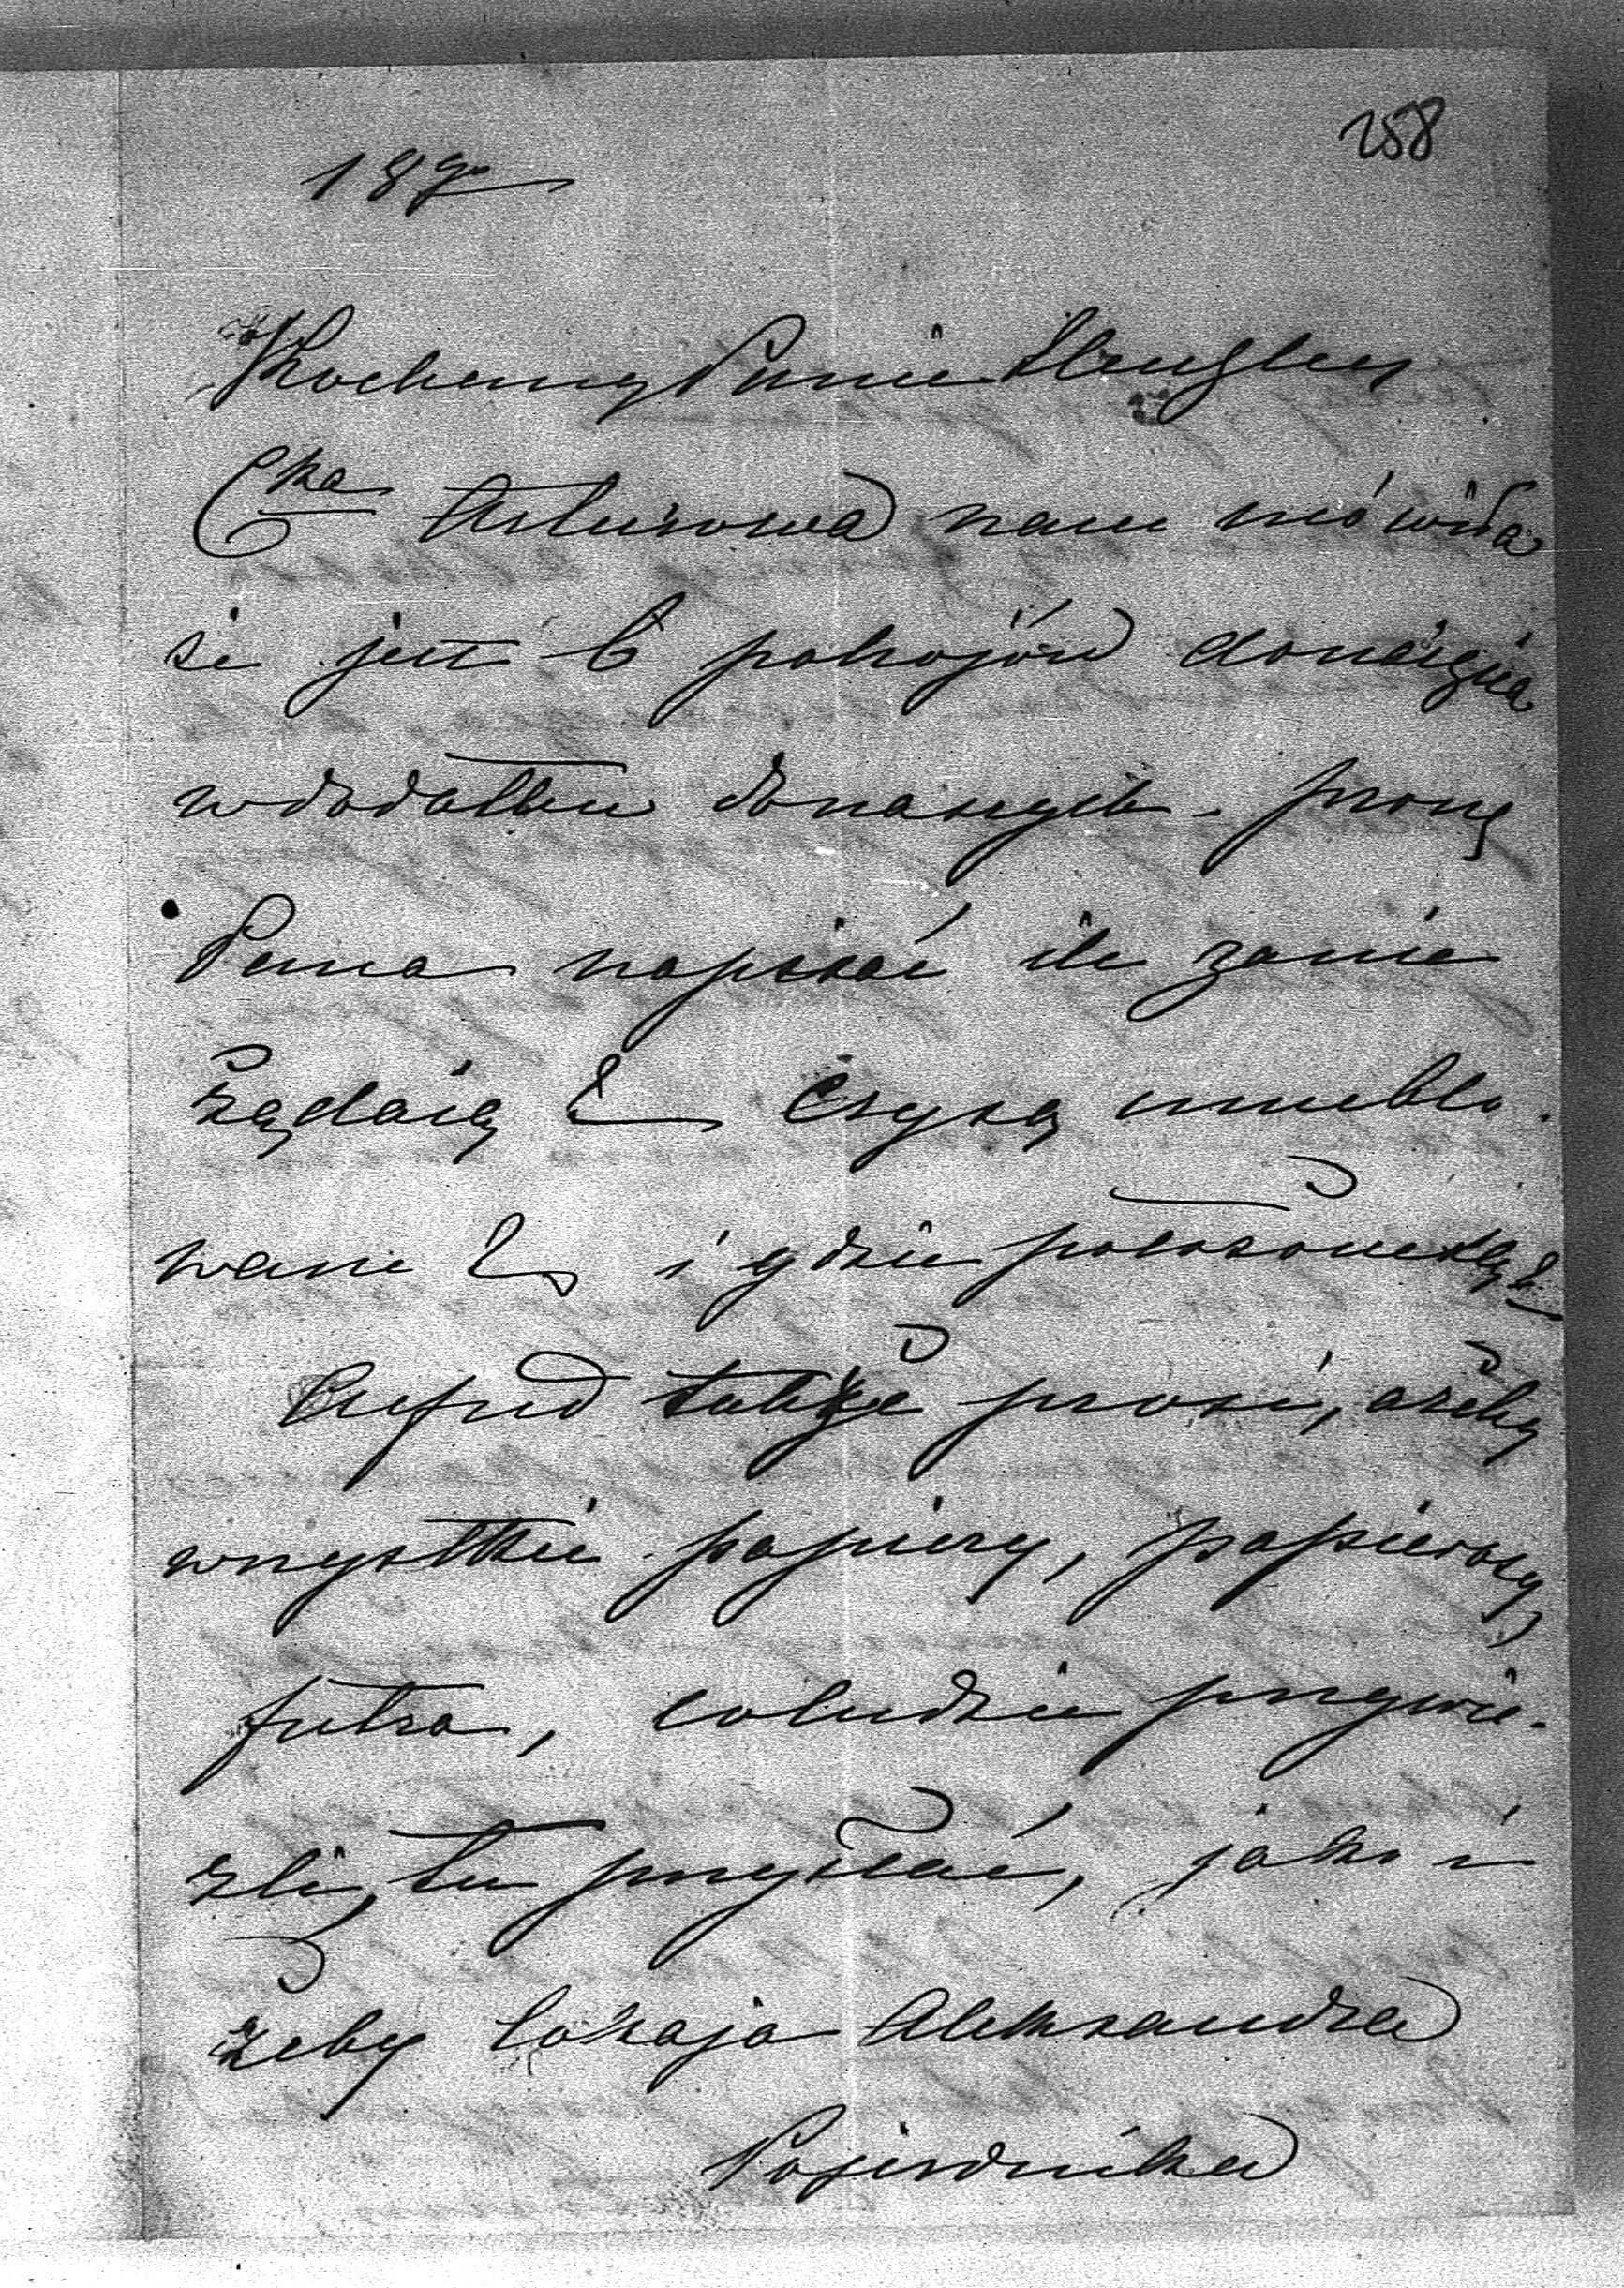 258
187
Kochany Panie
Cka Arturowa nam mówiła
że jest 6 pokojów do
w dodatku do naszych - proszę
Pana napisać ile za nie
żądaią & czy są umeblo-
wane & i gdzie położone są &
Alfred także prosi, ażeby
wszystkie papiery, papierosy,
futra, co ludzie przywie-
źli, tu przysłać, jako i
żeby lokaja Aleksandra